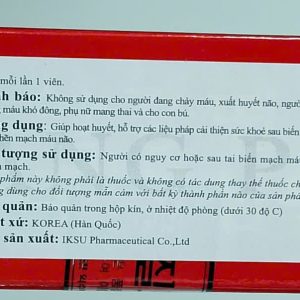 mỗi lần 1 viên.
h báo: Không sử dụng cho người đang chảy máu, xuất huyết não, ngườ
g máu khó đông, phụ nữ mang thai và cho con bú.
g dụng: Giúp hoạt huyết, hỗ trợ các liệu pháp cải thiện sức khoẻ sau biến
hẽn mạch máu não.
tượng sử dụng: Người có nguy cơ hoặc sau tai biến mạch máu
n mạch.
phẩm này không phải là thuốc và không có tác dụng thay thế thuốc ch
g dùng cho đối tượng mẫn cảm với bất kỳ thành phần nào của sản phẩ
quản: Bảo quản trong hộp kín, ở nhiệt độ phòng (dưới 30 độ C)
t xứ: KOREA (Hàn Quốc)
sản xuất: IKSU Pharmaceutical Co.,Ltd